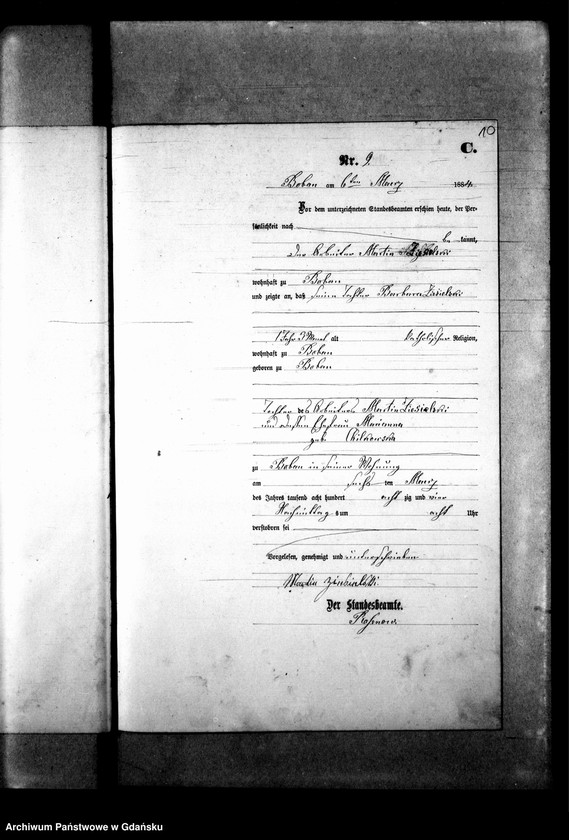 10
C.
Nr. 9.
Boban am 6ten März 1884.
Vor dem unterzeichneten Standesbeamten erschien heute, der Per-
sönlichkeit nach
be kannt,
der Arbeiter Martin
wohnhaft zu Boban
und zeigte an, daß seine Tochter Barbara
1 Jahr 3 Monat alt katholischer Religion,
wohnhaft zu Boban
geboren zu Boban
Tochter des Arbeiters Martin
und dessen Ehefrau Marianna
geb.
zu Boban in seiner Wohnung
am sechs ten März
des Jahres tausend acht hundert acht zig und vier
Nachmittag s um acht Uhr
verstorben sei
Vorgelesen, genehmigt und unterschrieben
Martin
Der Standesbeamte.
Archiwum Państwowe w Gdańsku